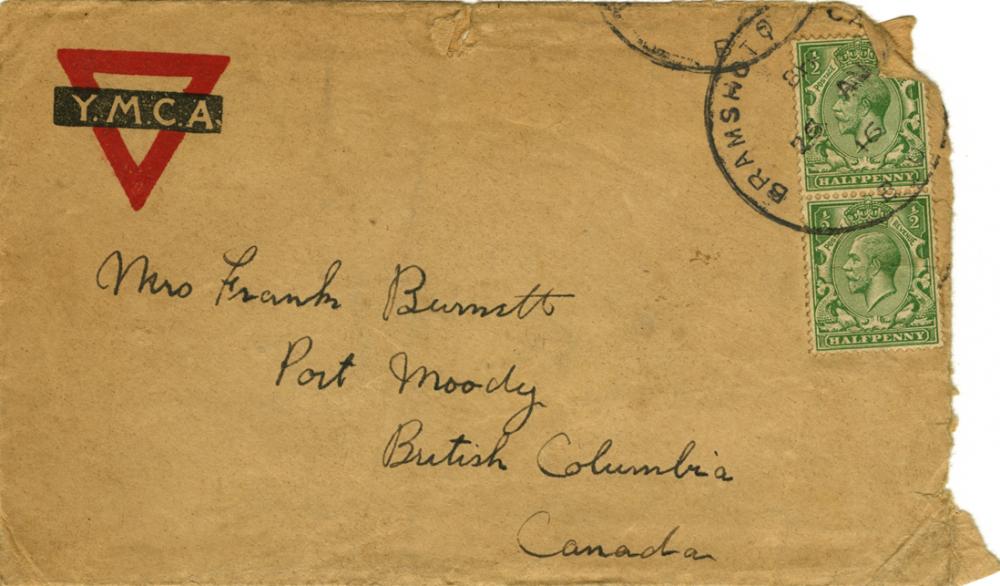 Y.M.C.A.
BRAMSHOTT CA
26
16
½
POSTAGE REVENUE
HALFPENNY
½ ½
POSTAGE REVENUE
HALFPENNY
Mrs Frank Burnett
Port Moody
British Columbia
Canada